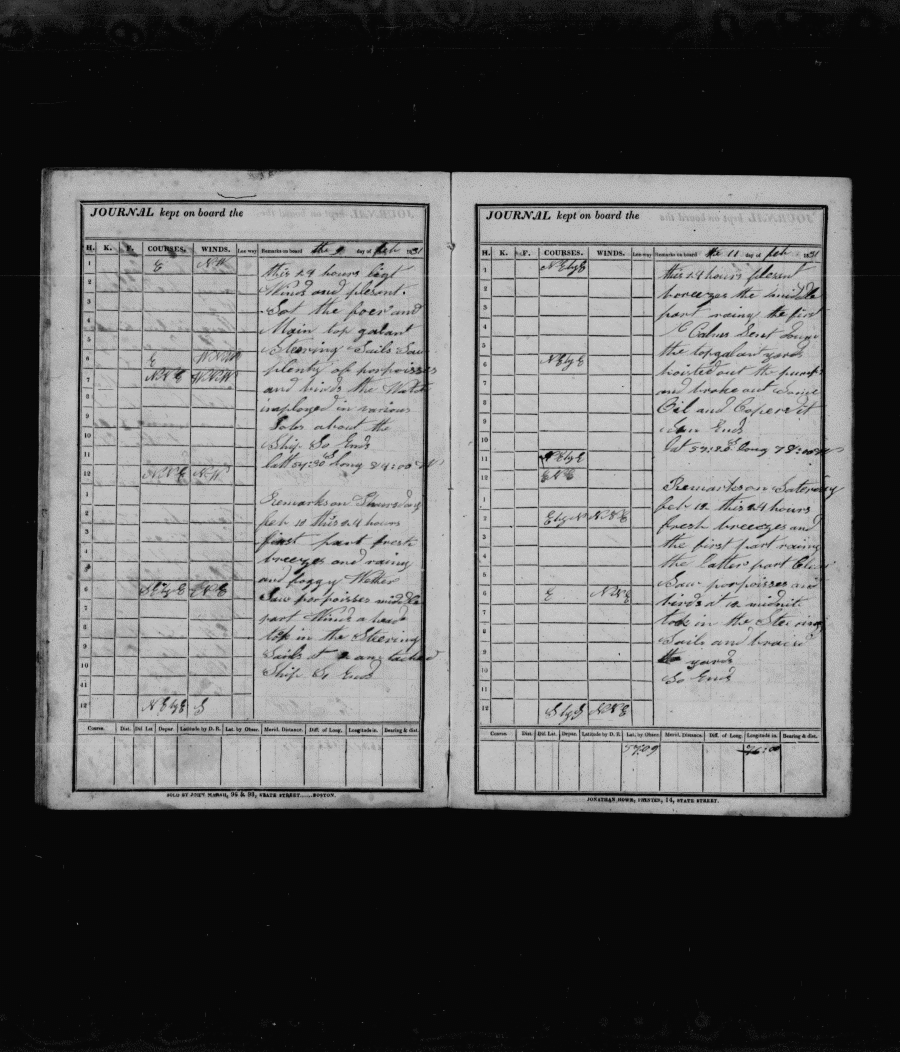 JOURNAL kept on board the
H. K. F. COURSES. WINDS. Lee-way Remarks on board the 9 day of feb 1831
1 E NW this 24 hours ligt
2 Winds and plesant
3 Sot the foer and
4 Main top galant
5 Steering Sails Saw
6 E WNW plenty of porpoises
7 NNE WNW and birds the Watch
8 imployed in various
9 Jobs about the
10 Ship So Ends
11 Latt 57:30 S Long 84:00 W
12 NNE NW
1 Remarks on Thursday
2 feb 10 this 24 hours
3 first part fresh
4 breezes and rainy
5 and foggy Wether
6 SEbyE ENE Saw porpoises middle
7 part Winds a head
8 took in the Steering
9 Sails at 12 and tacked
10 Ship So Ends
11
12 NEbyE S
Course. Dist. Dif Lat Depar. Latitude by D. R. Lat. by Obser. Merid. Distance. Diff. of Long. Longitude in. Bearing & dist.
SOLD BY JOHN MARSH, 96 & 98, STATE STREET......BOSTON.
JOURNAL kept on board the
H. K. F. COURSES. WINDS. Lee-way Remarks on board the 11 day of feb 1831
1 NEbyE this 24 hours plesent
2 breezes the midle
3 part rainy the first
4 Calm Sent down
5 the topgalant yards
6 NEbyE hoisted out the
7 and broke out Some
8 Oil and
9 So Ends
10 Lat 57:38 S Long 78:00 W
11 NEbyE
12 ENE
1 Remarks on Saterday
2 EbyN NNE feb 12 this 24 hours
3 fresh breezes and
4 the first part rainy
the latter part
5 Saw porpoises and
6 E NNE birds at 12 midnit
7 took in the Steering
8 Sails and braced
9 the yards
10 So Ends
11
12 SbyE NNE
Course. Dist. Dif Lat. Depar. Latitude by D. R. Lat. by Obser. Merid. Distance. Diff. of Long. Longitude in. Bearing & dist.
57:09 76:00
JONATHAN HOWE, PRINTER, 14, STATE STREET.